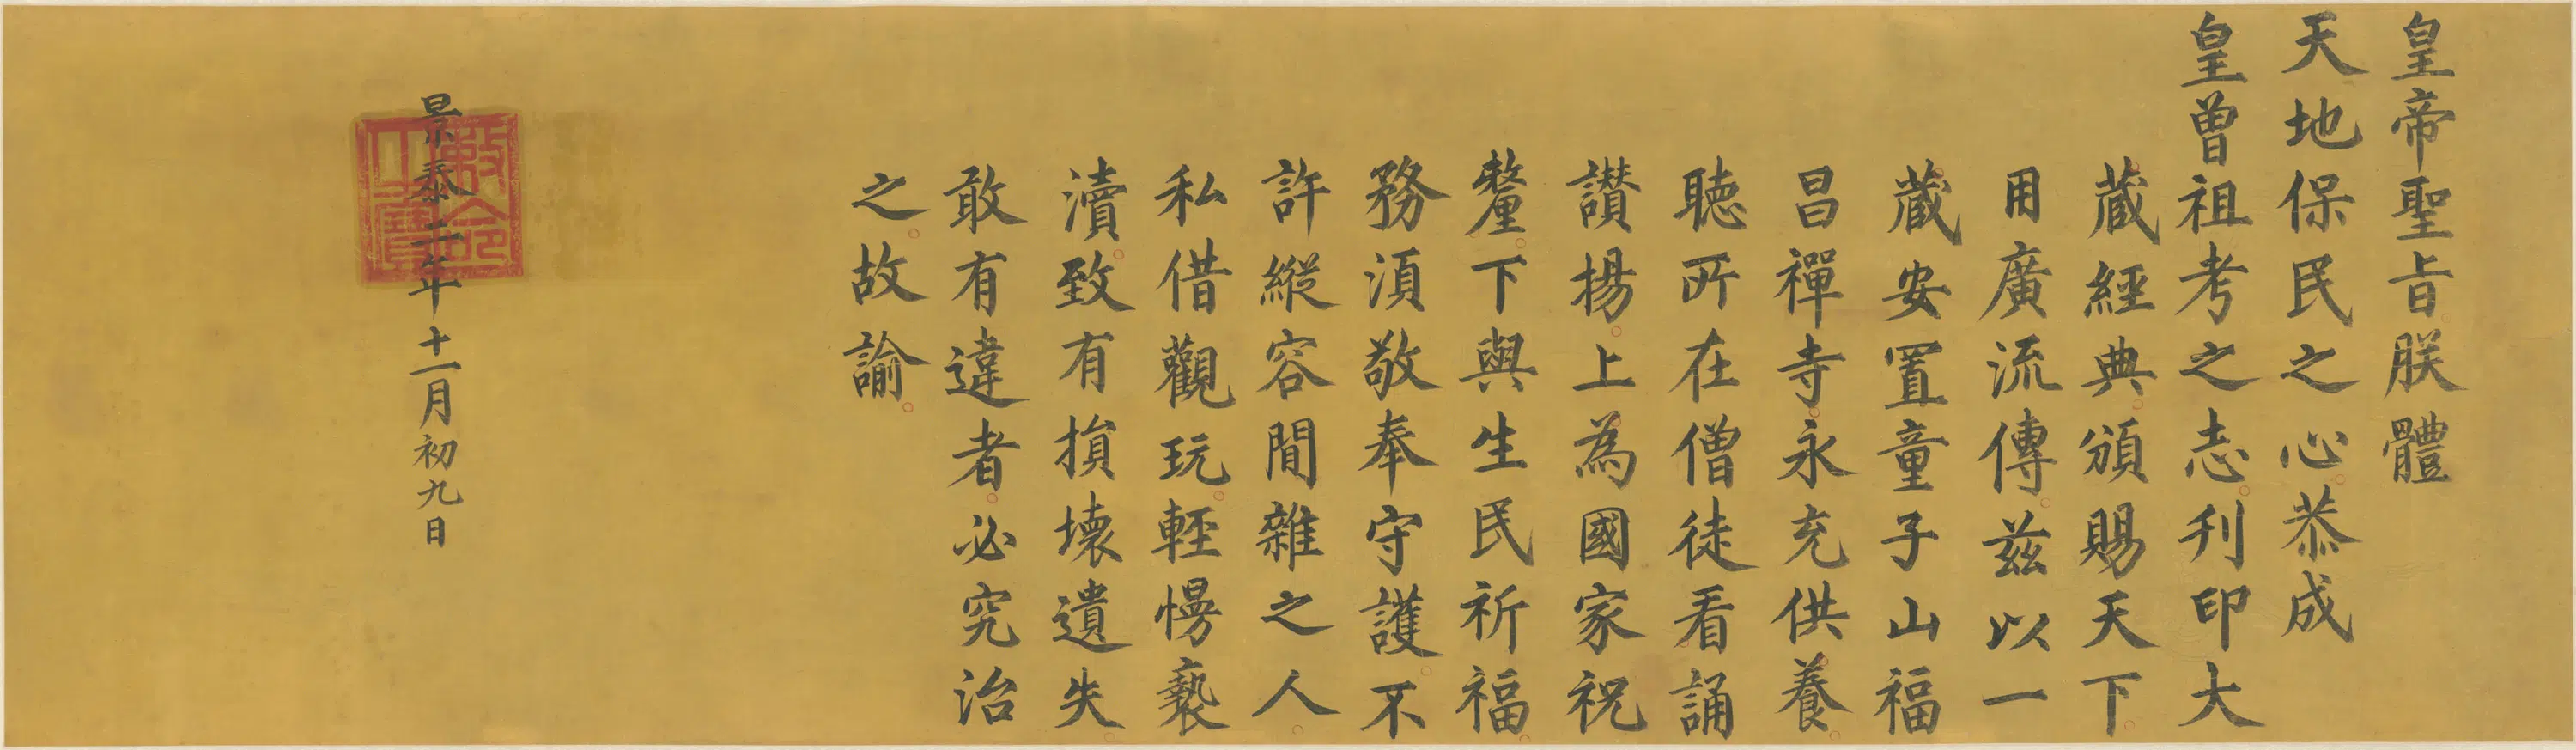 皇帝聖旨朕體
天地保民之心恭成
皇曾祖考之志刋印大
藏經典頒賜天下
用廣流傳茲以一
藏安置童子山福
昌禪寺永充供養
聽所在僧徒看誦
讃揚上為國家祝
釐下與生民祈福
務湏敬奉守護不
許縱容閒雜之人
私借觀玩輕慢褻
瀆致有損壞遺失
敢有違者必究治
之故諭
景泰二年十一月初九日
敕命之寶